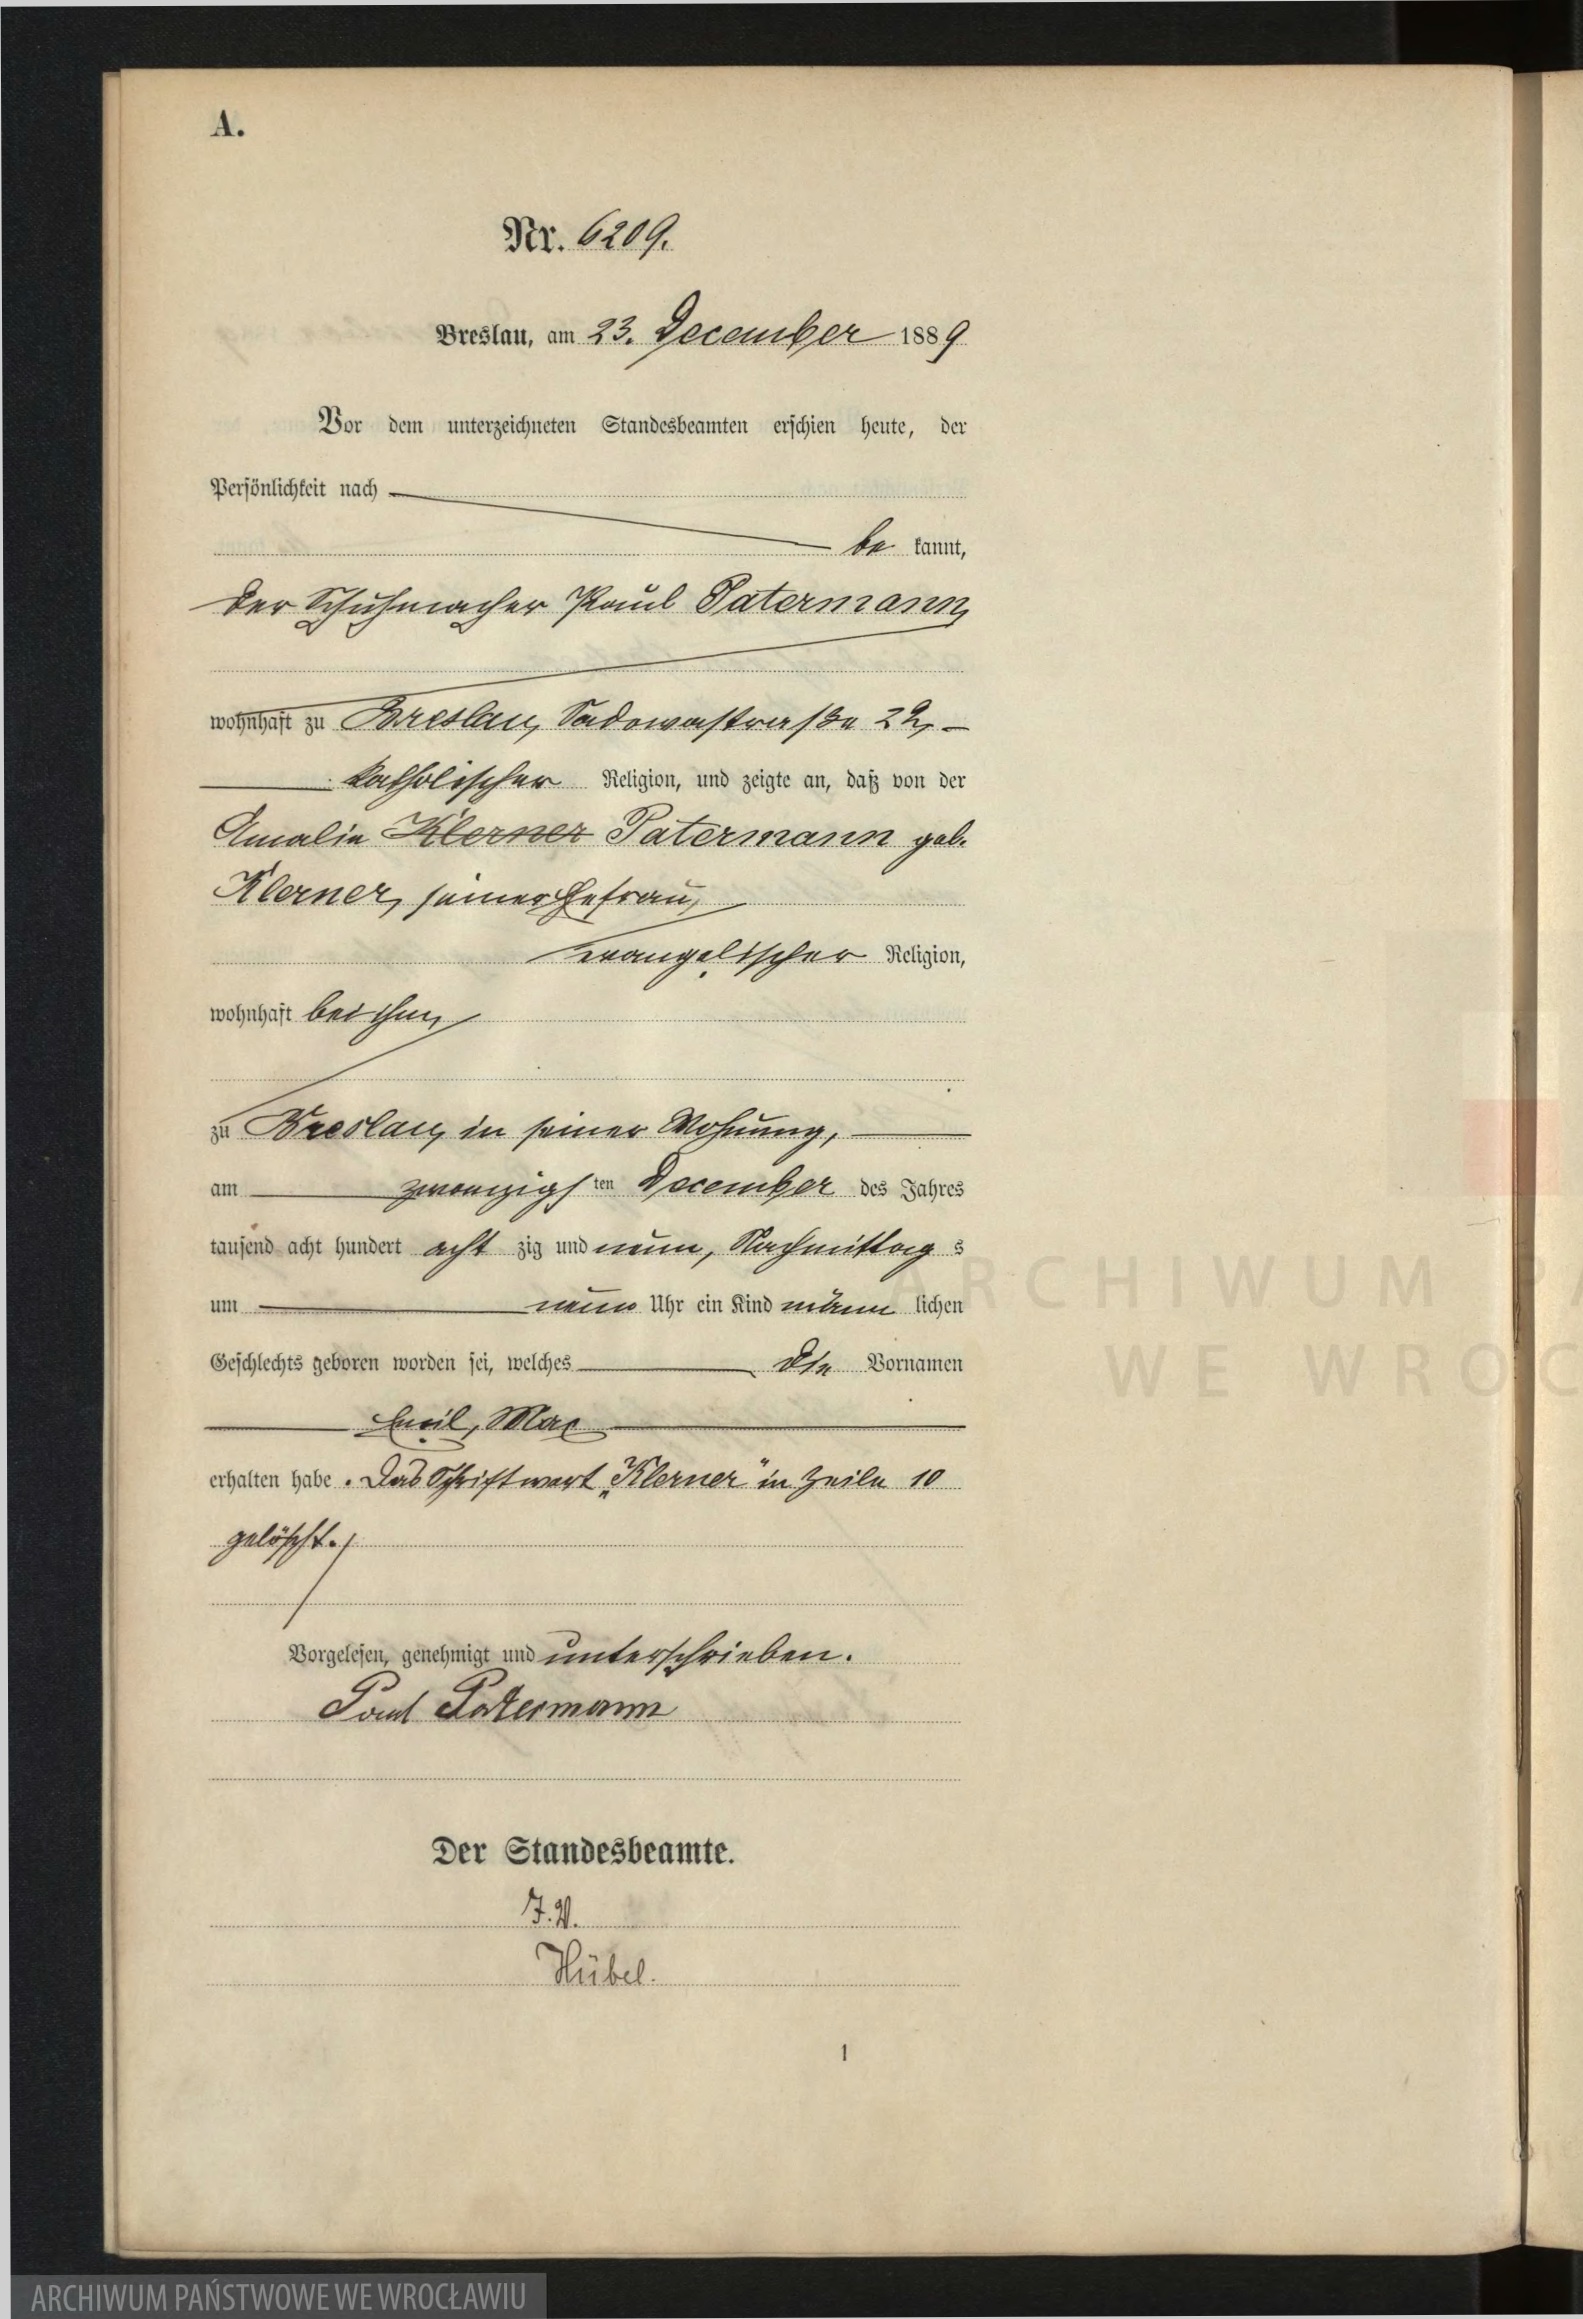 A.
Nr. 6209.
Breslau, am 23. December 1889
Vor dem unterzeichneten Standesbeamten erschien heute, der
Persönlichkeit nach
be kannt,
der Schuhmacher Paul Patermann,
wohnhaft zu Breslau, Sadowastraße
katholischer Religion, und zeigte an, daß von der
Amalie Klerner Patermann geb.
Klerner, seiner Ehefrau,
evangelischer Religion,
wohnhaft bei ihm,
zu Breslau, in seiner Wohnung,
am zwanzigsten December des Jahres
tausend acht hundert acht zig und neun, Nachmittag s
um neun Uhr ein Kind männ lichen
Geschlechts geboren worden sei, welches die Vornamen
Emil, Max
erhalten habe. Das Schriftwort „Klerner“ in Zeile 10
gelöscht.
Vorgelesen, genehmigt und unterschrieben.
Paul Patermann
Der Standesbeamte.
I. V.
Hübel.
1
ARCHIWUM PA
WE WROC
ARCHIWUM PAŃSTWOWE WE WROCŁAWIU